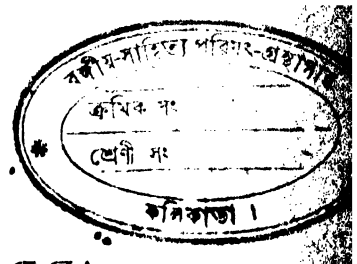 বঙ্গীয়-সাহিত্য পরিষৎ-গ্রন্থাগার
ক্রমিক সং
শ্রেণী সং
কলিকাতা ।